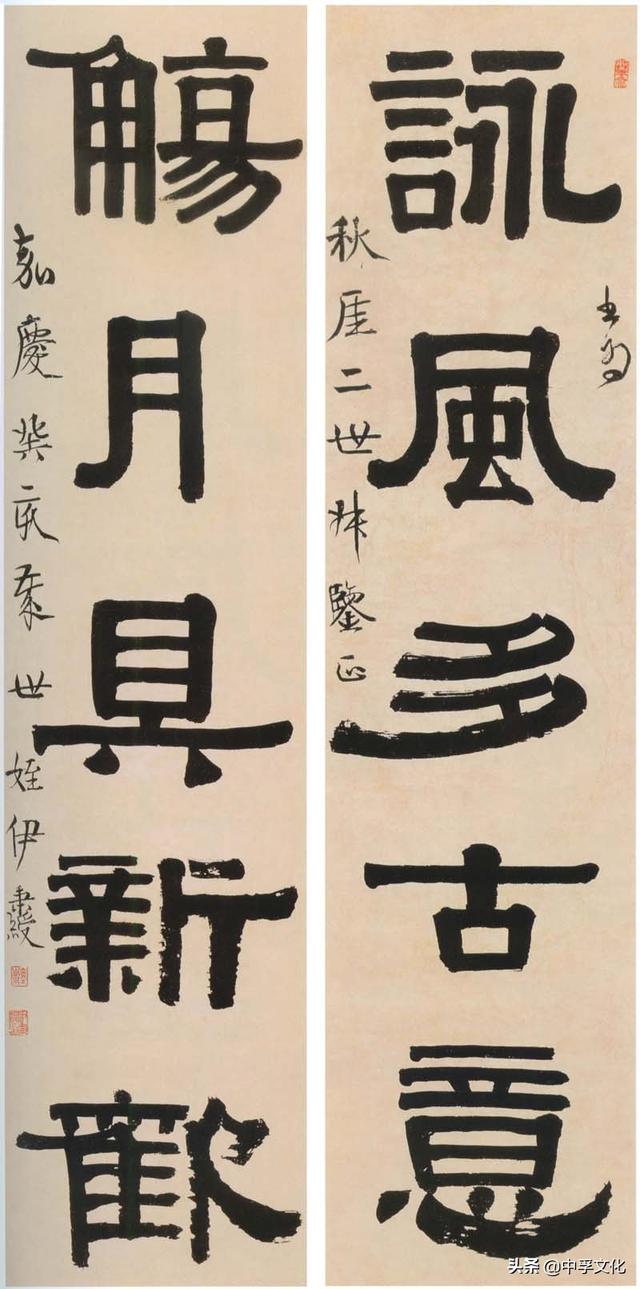 書為
詠風多古意
秋厓二世叔鑒正
觴月具新歡
嘉慶癸亥 世姪伊秉綬
头条 @中孚文化